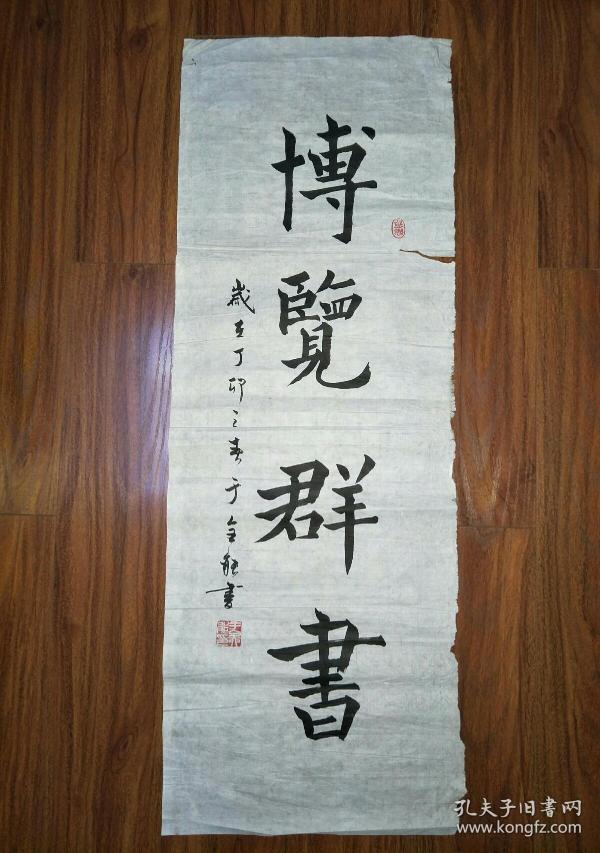 博覽群書
歲在丁卯之春于金鈺書
孔夫子旧書网
www.kongfz.com